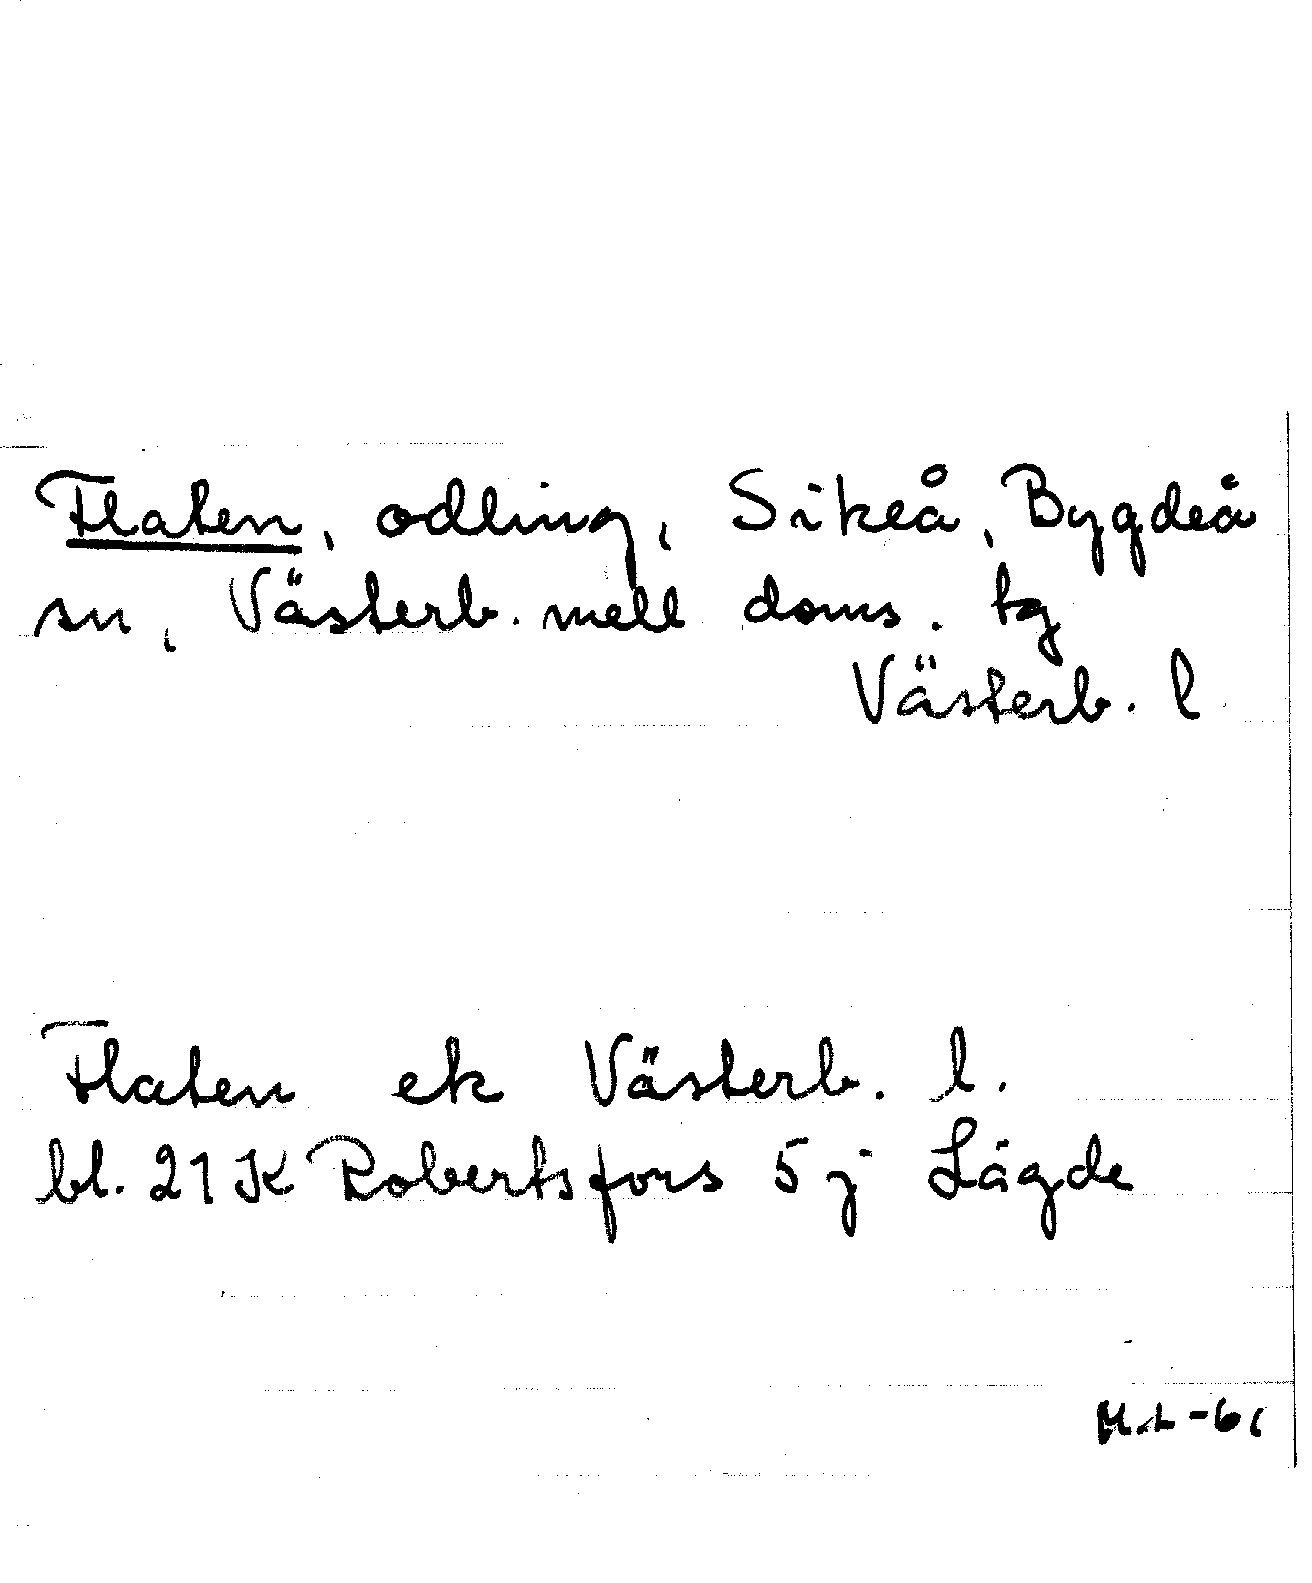 Flaten, odling, Sikeå, Bygdeå
sn, Västerb. mell doms. tg
Västerb. l
Flaten ek Västerb. l.
bl. 21 K Robertsfors 5 j Lägde
H.L-61